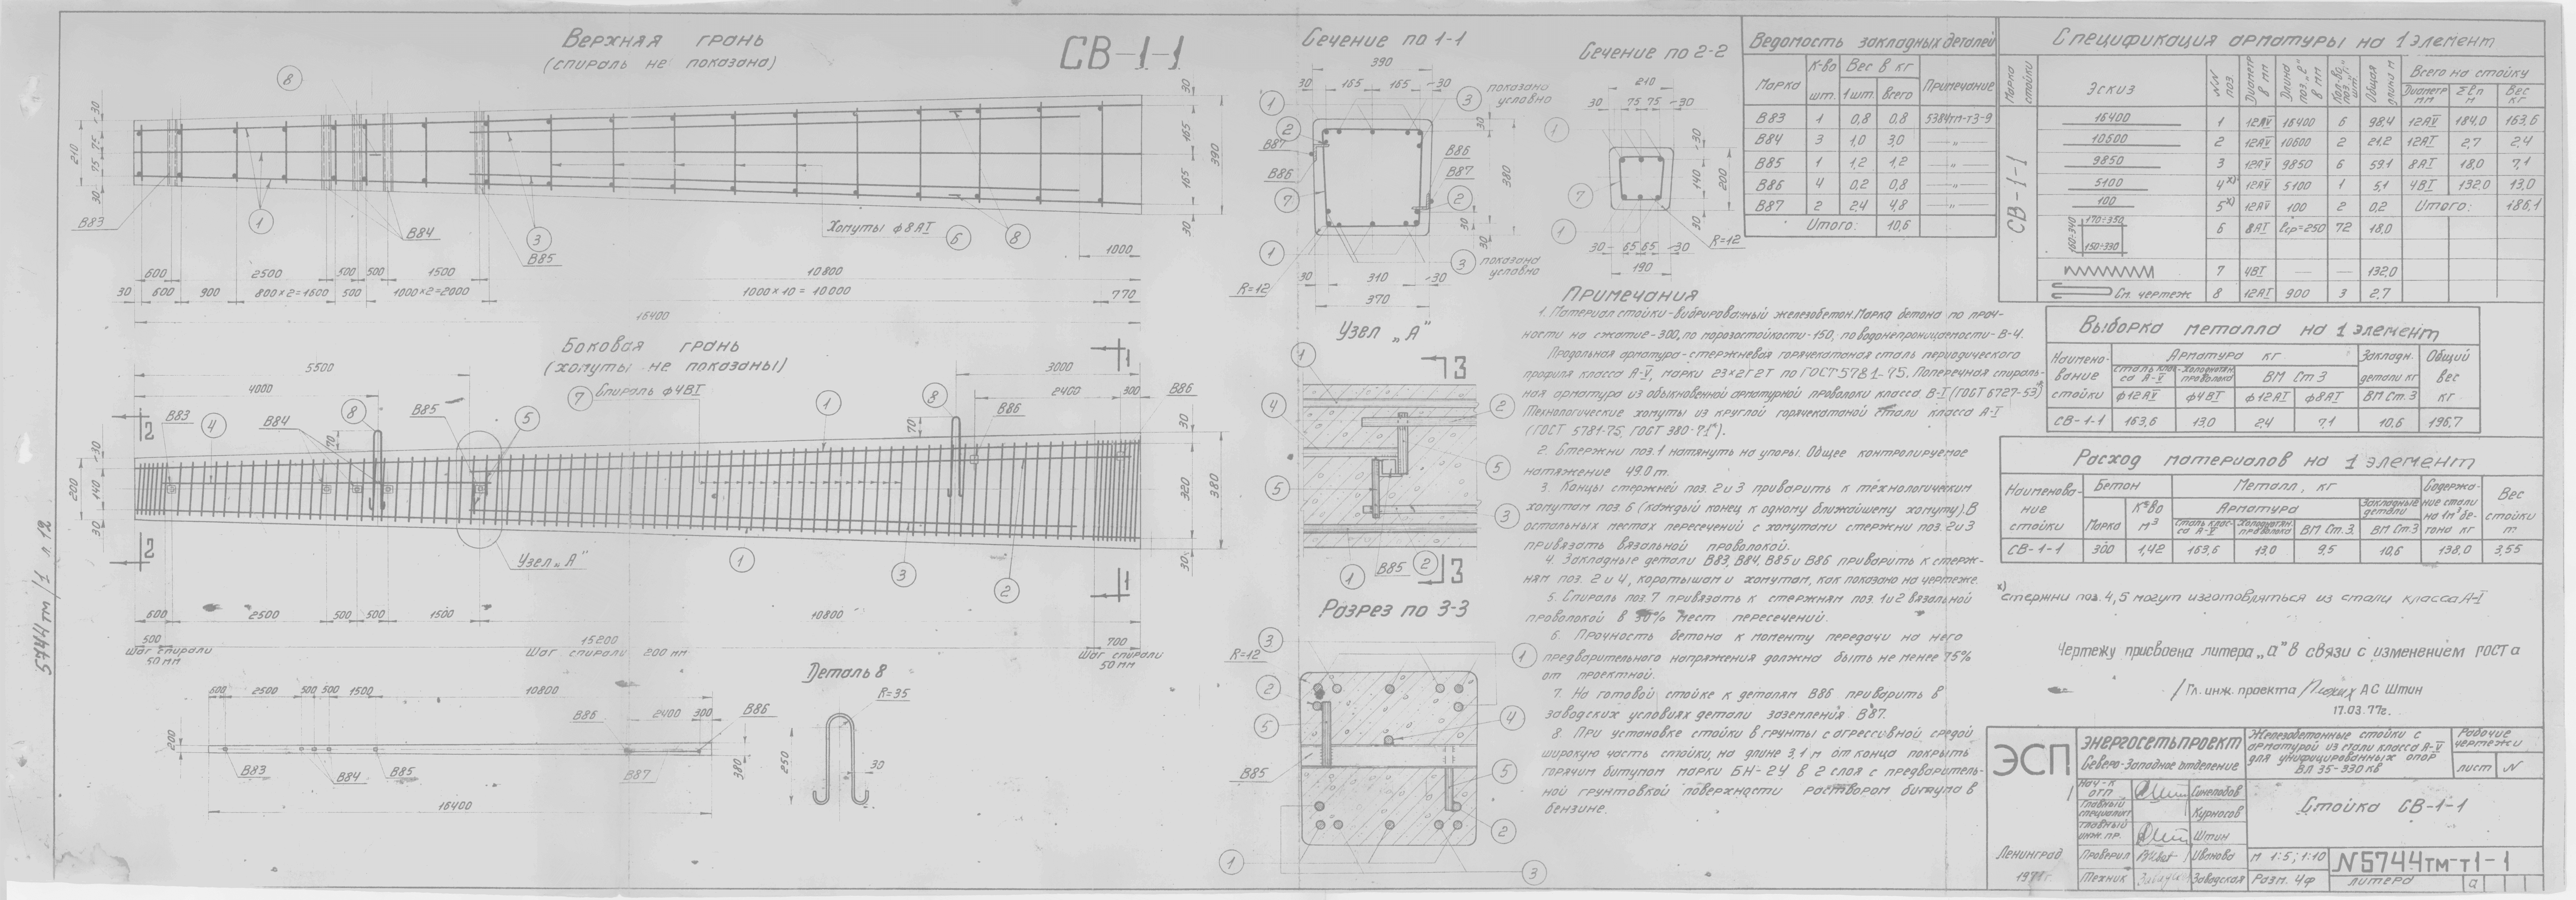 Верхняя грань
(спираль не показана)
СВ-1-1
8
30
75
75
30
210
В83
1
В84
3
В85
Хомуты ф8АI
6
8
30
165
165
30
390
1000
600
2500
500
500
1500
10800
30
600
900
800×2=1600
500
1000×2=2000
1000×10=10000
770
16400
Боковая грань
(хомуты не показаны)
5500
4000
3000
2400
300
1
В86
7
Спираль ф4ВI
2
В83
4
В84
8
В85
5
1
8
В86
70
70
30
140
30
200
30
320
30
380
Узел „А"
1
3
2
2
1
600
2500
500
500
1500
10800
500
15200
700
Шаг спирали
50 мм
Шаг спирали 200 мм
Шаг спирали
50 мм
Деталь 8
R=35
250
30
600
2500
500
500
1500
10800
В86
2400
300
В86
200
В83
В84
В85
В87
380
16400
5744тм/1 л.12
Сечение по 1-1
390
30
165
165
30
показано
условно
1
3
2
В87
В86
В86
В87
7
2
1
3
показано
условно
30
380
30
30
30
310
30
R=12
370
Сечение по 2-2
210
30
75
75
30
1
7
1
30
140
30
200
30
65
65
30
R=12
190
Узел „А"
1
3
4
2
5
5
3
1
В85
2
3
Разрез по 3-3
3
R=12
1
2
5
4
В85
5
2
1
3
Примечания
1. Материал стойки-вибрированный железобетон. Марка бетона по проч-
ности на сжатие-300, по морозостойкости-150, по водонепроницаемости-В-4.
Продольная арматура-стержневая горячекатаная сталь периодического
профиля класса А-V, марки 23×2Г2Т по ГОСТ 5781-75. Поперечная спираль-
ная арматура из обыкновенной арматурной проволоки класса В-I (ГОСТ 6727-53*)
Технологические хомуты из круглой горячекатаной стали класса А-I
(ГОСТ 5781-75, ГОСТ 380-71*).
2. Стержни поз.1 натянуть на упоры. Общее контролируемое
натяжение 49,0 т.
3. Концы стержней поз. 2 и 3 приварить к технологическим
хомутам поз. 6 (каждый конец к одному ближайшему хомуту). В
остальных местах пересечений с хомутами стержни поз. 2 и 3
привязать вязальной проволокой.
4. Закладные детали В83, В84, В85 и В86 приварить к стерж-
ням поз. 2 и 4, коротышам и хомутам, как показано на чертеже.
5. Спираль поз. 7 привязать к стержням поз. 1 и 2 вязальной
проволокой в 30% мест пересечений.
6. Прочность бетона к моменту передачи на него
предварительного напряжения должна быть не менее 75%
от проектной.
7. На готовой стойке к деталям В86 приварить в
заводских условиях детали заземления В87.
8. При установке стойки в грунты с агрессивной средой
широкую часть стойки, на длине 3,1 м от конца покрыть
горячим битумом марки БН-2У в 2 слоя с предваритель-
ной грунтовкой поверхности раствором битума в
бензине.
Ведомость закладных деталей
Марка К-во шт. Вес в кг Примечание
1 шт. Всего
В83 1 0,8 0,8 5384тм-т3-9
В84 3 1,0 3,0 —„—
В85 1 1,2 1,2 —„—
В86 4 0,2 0,8 —„—
В87 2 2,4 4,8 —„—
Итого: 10,6
Спецификация арматуры на 1 элемент
Марка стойки Эскиз NN поз. Диаметр в мм Длина поз. „е" в мм Кол-во поз. „n" шт. Общая длина м Всего на стойку
Диаметр мм Σеn м Вес кг
СВ-1-1
16400 1 12АV 16400 6 98,4 12АV 184,0 163,6
10600 2 12АV 10600 2 21,2 12АI 2,7 2,4
9850 3 12АV 9850 6 59,1 8АI 18,0 7,1
5100 4х) 12АV 5100 1 5,1 4ВI 132,0 13,0
100 5х) 12АV 100 2 0,2 Итого: 186,1
170÷350
160÷340
150÷330
6 8АI еср=250 72 18,0
7 4ВI — — 132,0
См. чертеж 8 12АI 900 3 2,7
Выборка металла на 1 элемент
Наимено-
вание
стойки
Арматура кг
Закладн.
детали кг
Общий
вес
кг
Сталь клас-
са А-V
Холоднотян.
проволока
ВМ Ст 3
ф12АV ф4ВI ф12АI ф8АI ВМ Ст.3
СВ-1-1 163,6 13,0 2,4 7,1 10,6 196,7
Расход материалов на 1 элемент
Наименова-
ние
стойки
Бетон
Металл, кг
Содержа-
ние стали
на 1м³ бе-
тона кг
Вес
стойки
т
Марка К-во м³
Арматура
Закладные
детали
Сталь клас-
са А-V
Холоднотян.
проволока
ВМ Ст.3 ВМ Ст.3
СВ-1-1 300 1,42 163,6 13,0 9,5 10,6 138,0 3,55
х) стержни поз. 4, 5 могут изготовляться из стали класса А-I
Чертежу присвоена литера „а" в связи с изменением госта
/Гл. инж. проекта / А С Штин
17.03.77г.
ЭСП
Энергосетьпроект
Северо-Западное отделение
Железобетонные стойки с
арматурой из стали класса А-V
для унифицированных опор
ВЛ 35-330 кВ
Рабочие
чертежи
лист N
Нач-к ОТП Синелобов
Главный специалист Курносов
Главный инж. пр. Штин
Проверил Иванова
Техник Заводская
Ленинград
1971г.
Стойка СВ-1-1
М 1:5; 1:10
Разм. 4ф
N5744тм-т1-1
литера а